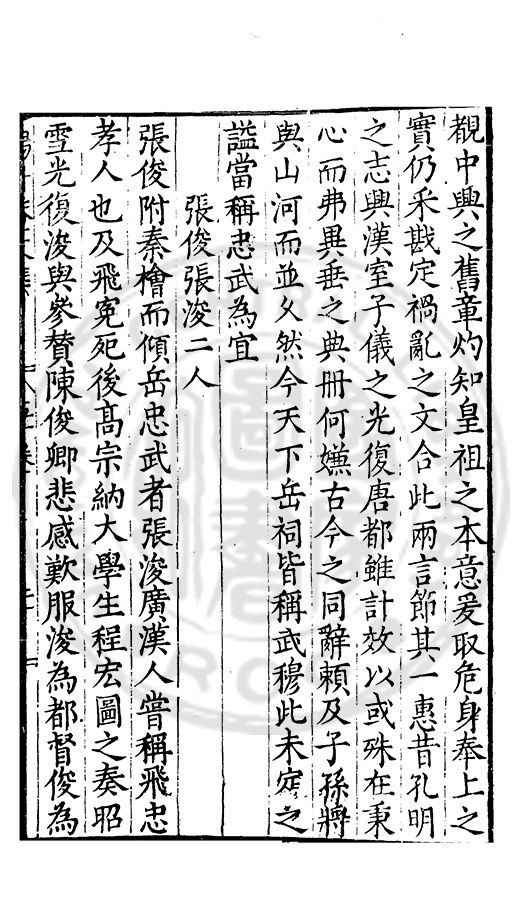 覩中興之舊章灼知皇祖之本意爰取危身奉上之
實仍采戡定禍亂之文合此兩言節其一惠昔孔明
之志興漢室子儀之光復唐都雖計效以或殊在秉
心而弗異垂之典册何嫌古今之同辭頼及子孫將
與山河而並久然今天下岳祠皆稱武穆此未定之
謚當稱忠武為宜
張俊張浚二人
張俊附秦檜而傾岳忠武者張浚廣漢人嘗稱飛忠
孝人也及飛寃死後髙宗納大學生程宏圖之奏昭
雪光復浚與參賛陳俊卿悲感歎服浚為都督俊為